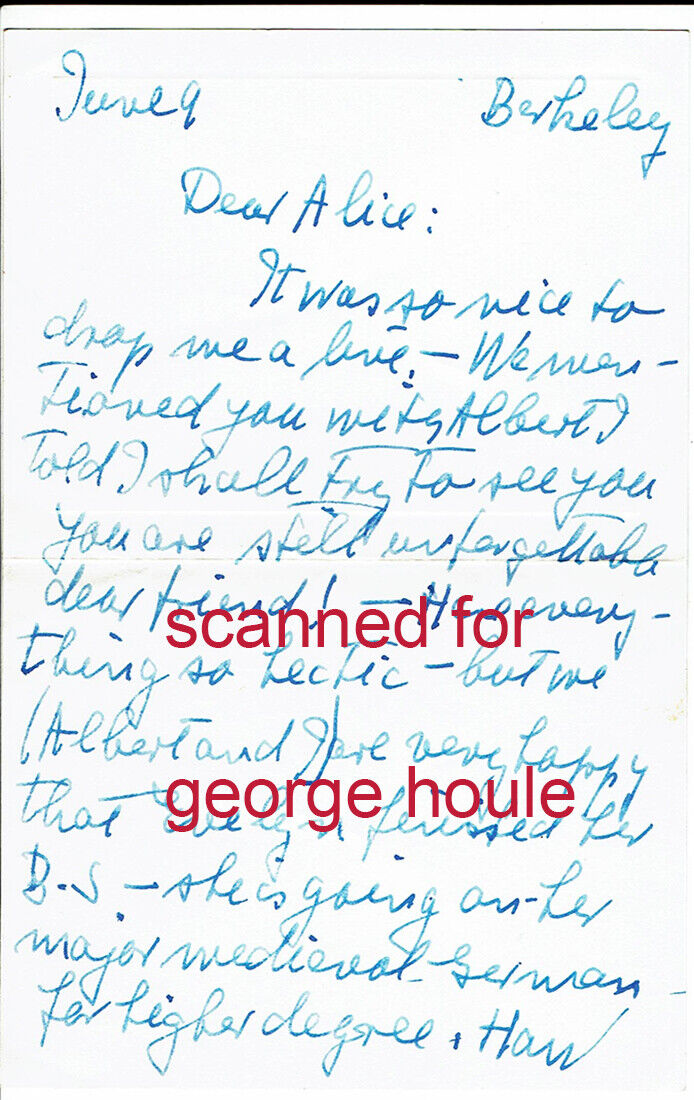 June 9 Berkeley
Dear Alice:
It was so nice to
drop me a line. — We men-
tioned you with Albert I
told I shall try to see you
you are still unforgettable
dear friend! — Here every-
thing so hectic — but we
scanned for
(Albert and I) are very happy
that Evelyn finissed her
george houle
B.S — she is going on her
major medieval German
for higher degree.